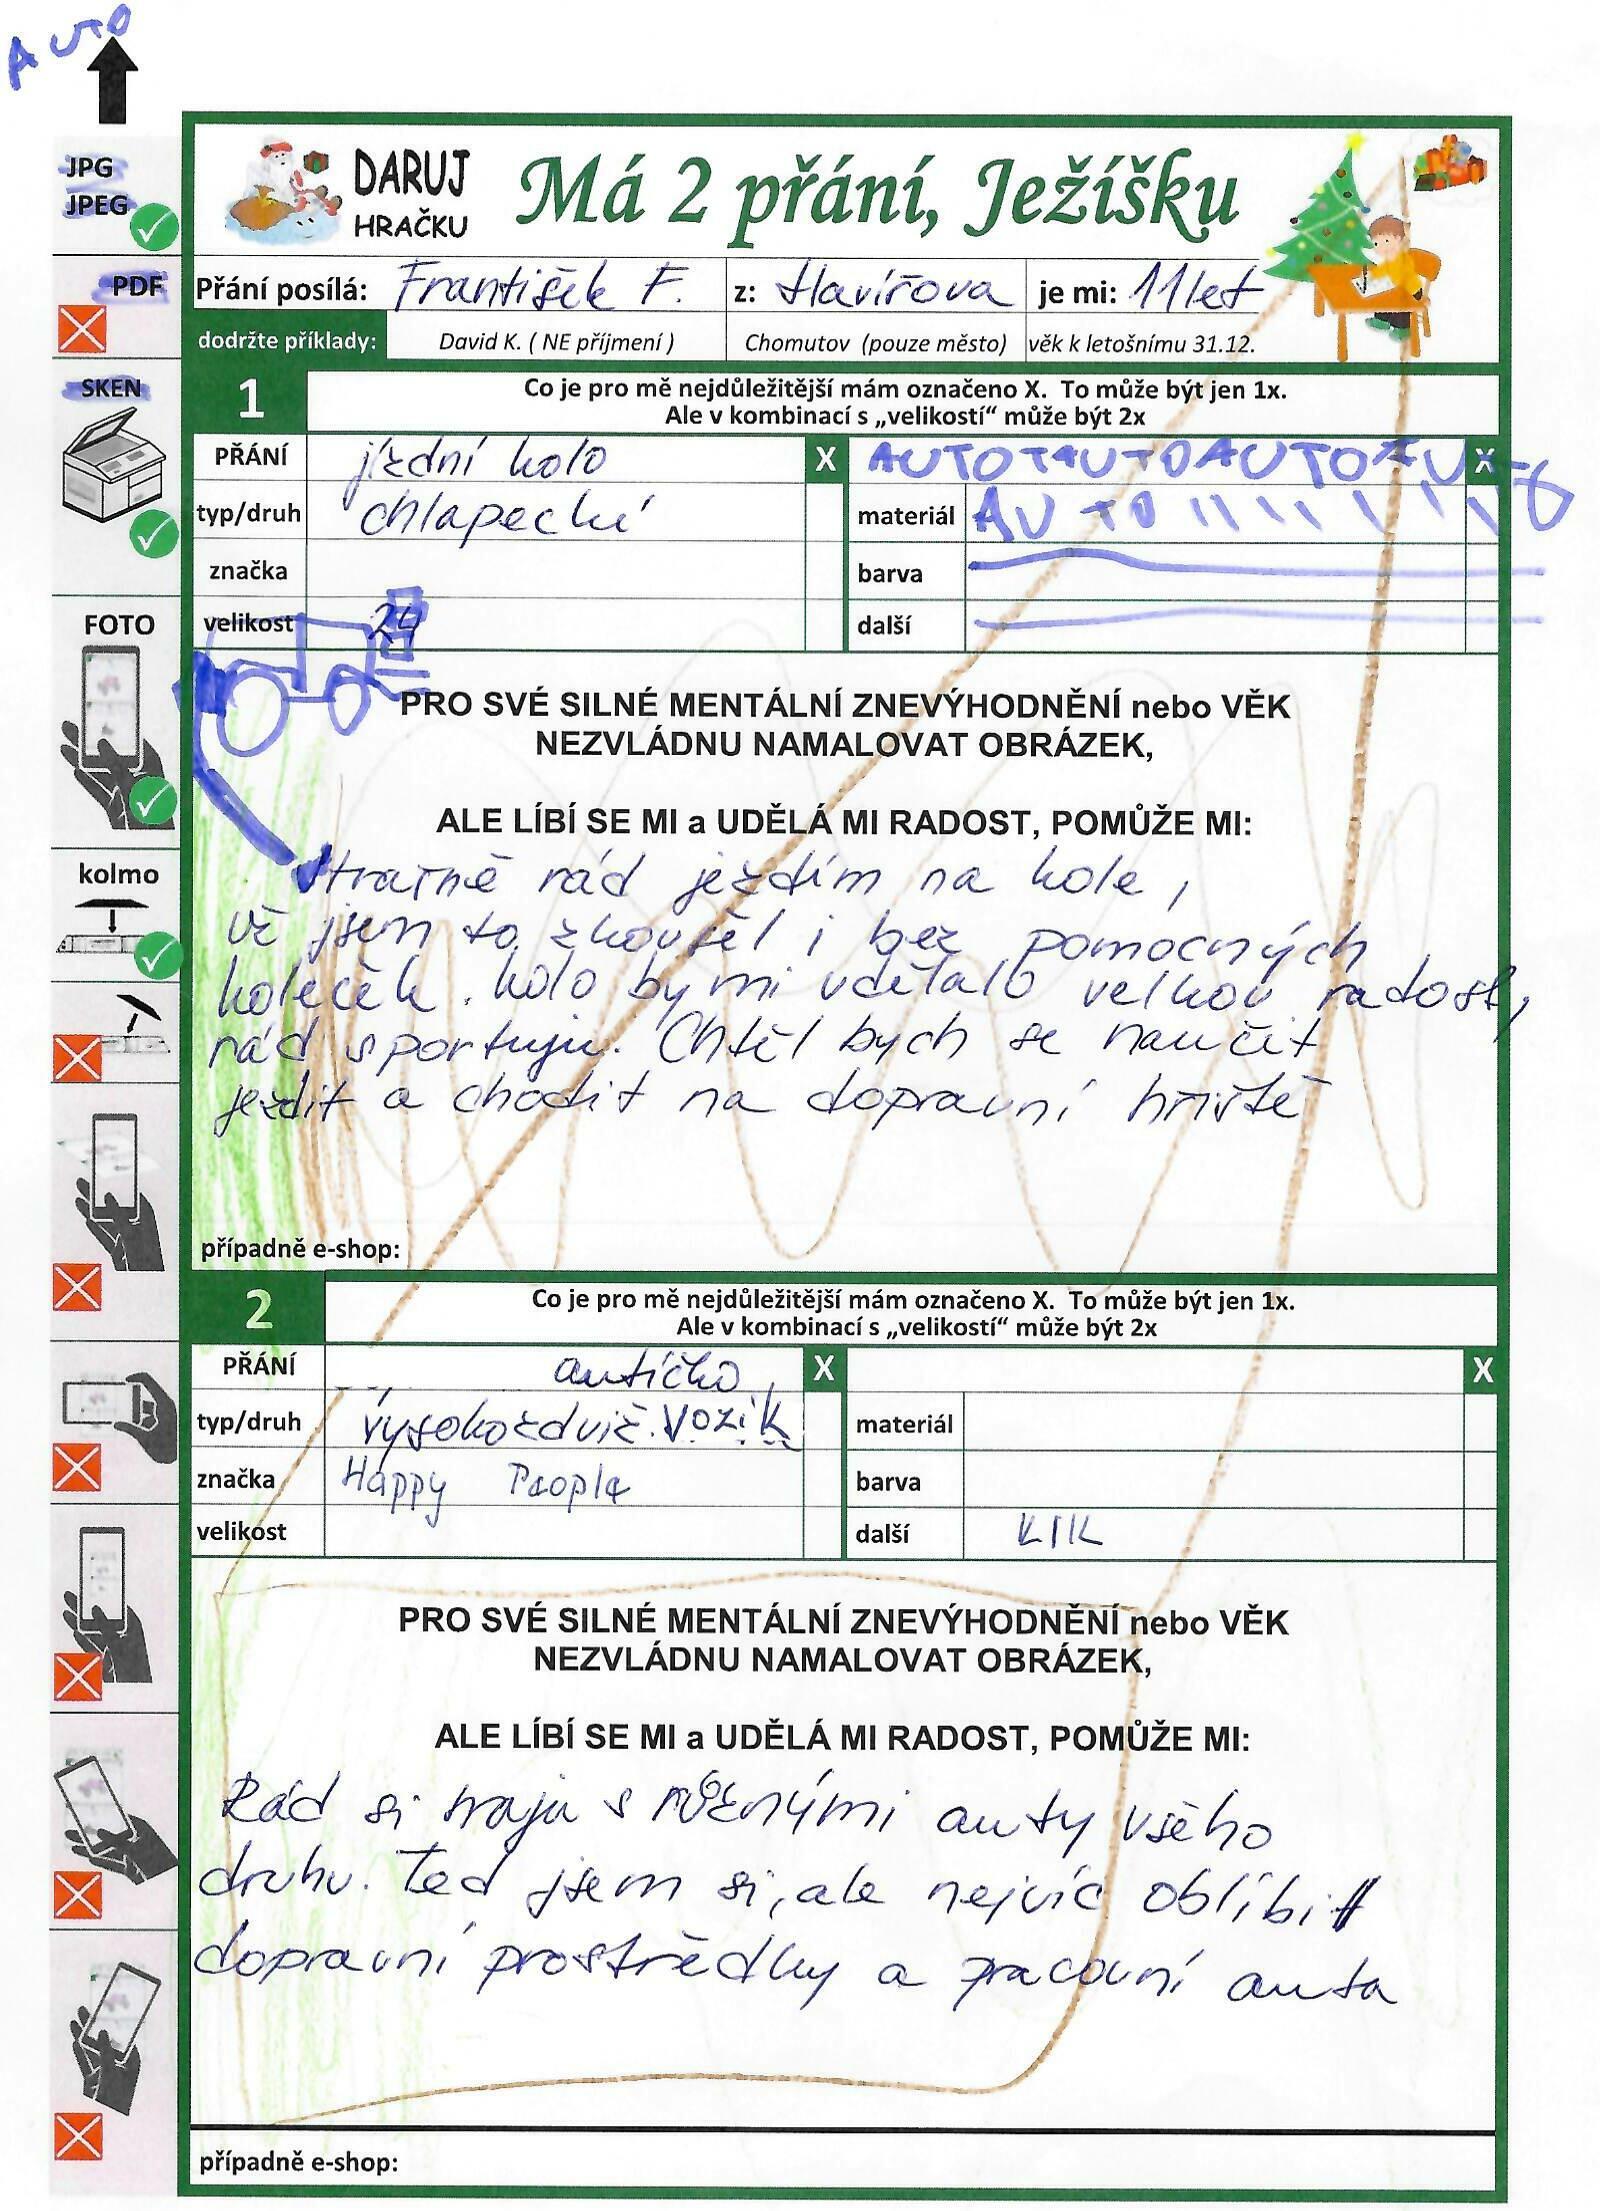 AUTO
JPG
JPEG
PDF
SKEN
FOTO
kolmo
DARUJ
HRAČKU
Má 2 přání, Ježíšku
Přání posílá: František F. z: Havířova je mi: 11 let
dodržte příklady: David K. ( NE příjmení ) Chomutov (pouze město) věk k letošnímu 31.12.
1 Co je pro mě nejdůležitější mám označeno X. To může být jen 1x.
Ale v kombinací s „velikostí“ může být 2x
PŘÁNÍ jízdní kolo X AUTO AUTO AUTO X
typ/druh chlapecké materiál AUTO
značka barva
velikost 24 další
PRO SVÉ SILNÉ MENTÁLNÍ ZNEVÝHODNĚNÍ nebo VĚK
NEZVLÁDNU NAMALOVAT OBRÁZEK,
ALE LÍBÍ SE MI a UDĚLÁ MI RADOST, POMŮŽE MI:
Hrazně rád jezdím na kole,
už jsem to zkoušel i bez pomocných
koleček. Kolo by mi udělalo velkou radost,
rád sportuju. Chtěl bych se naučit
jezdit a chodit na dopravní hřiště
případně e-shop:
2 Co je pro mě nejdůležitější mám označeno X. To může být jen 1x.
Ale v kombinací s „velikostí“ může být 2x
PŘÁNÍ autíčko X X
typ/druh vysokozdviž. vozík materiál
značka Happy People barva
velikost další KIK
PRO SVÉ SILNÉ MENTÁLNÍ ZNEVÝHODNĚNÍ nebo VĚK
NEZVLÁDNU NAMALOVAT OBRÁZEK,
ALE LÍBÍ SE MI a UDĚLÁ MI RADOST, POMŮŽE MI:
Rád si hraju s různými auty všeho
druhu. Teď jsem si, ale nejvíc oblíbil
dopravní prostředky a pracovní auta
případně e-shop: